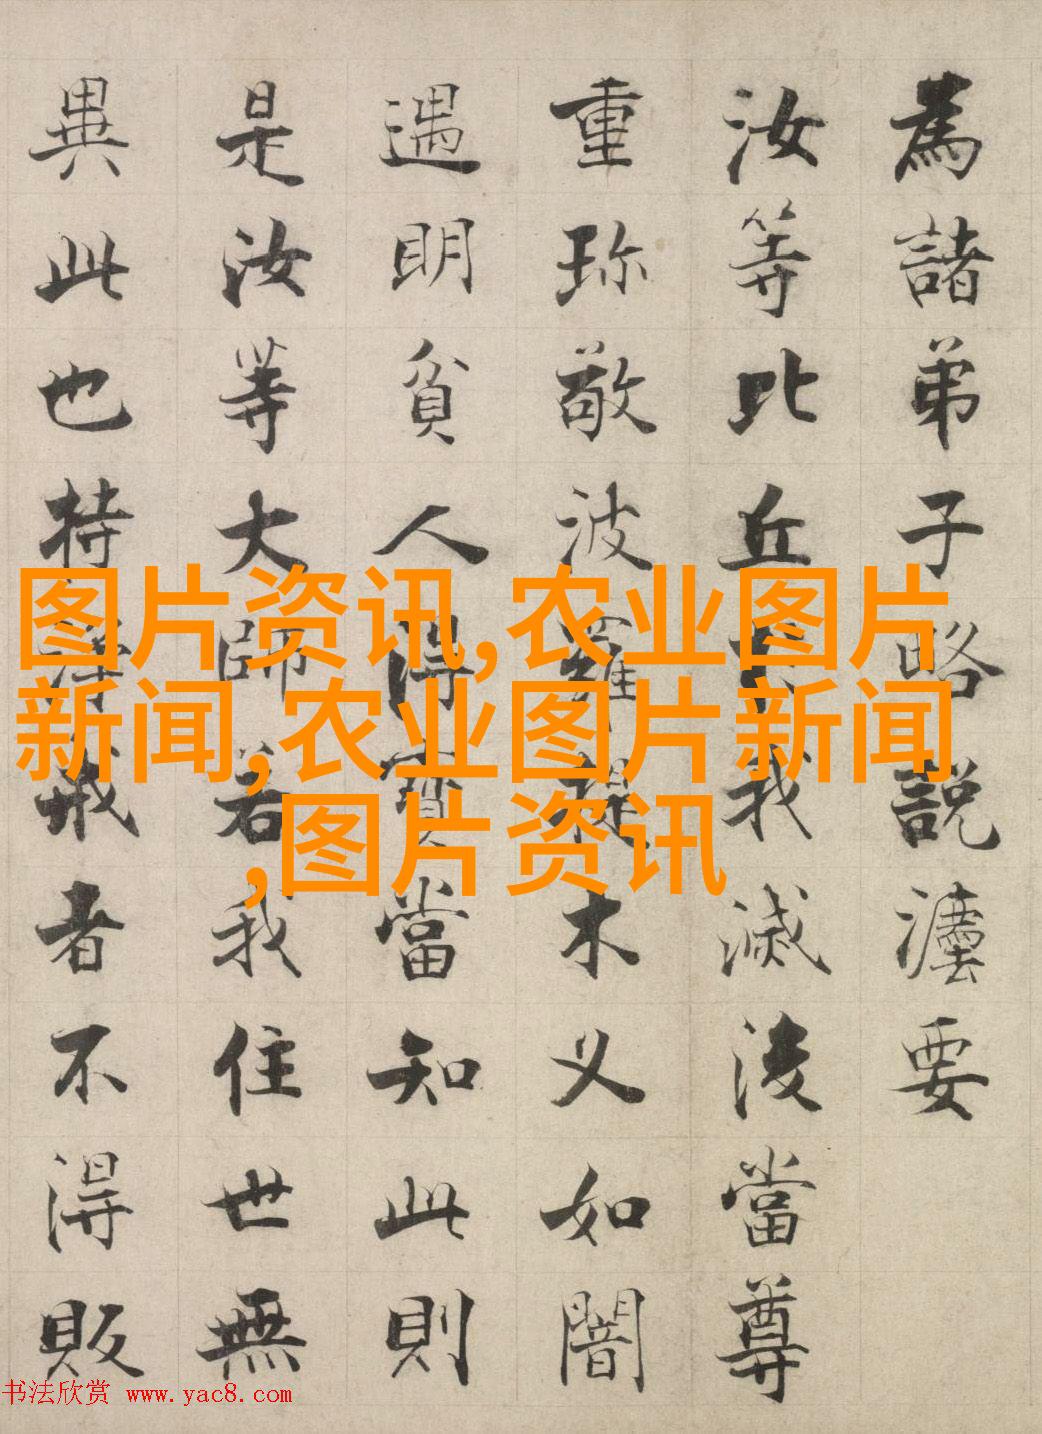 為諸弟子略説灋要
汝等比丘我滅後當尊
重珎敬波羅提木叉如闇
遇明貧人得寶當知此則
是汝等大師若我住世無
異此也持淨戒者不得販
图片资讯,农业图片
新闻,农业图片新闻
,图片资讯
书法欣赏 www.yac8.com